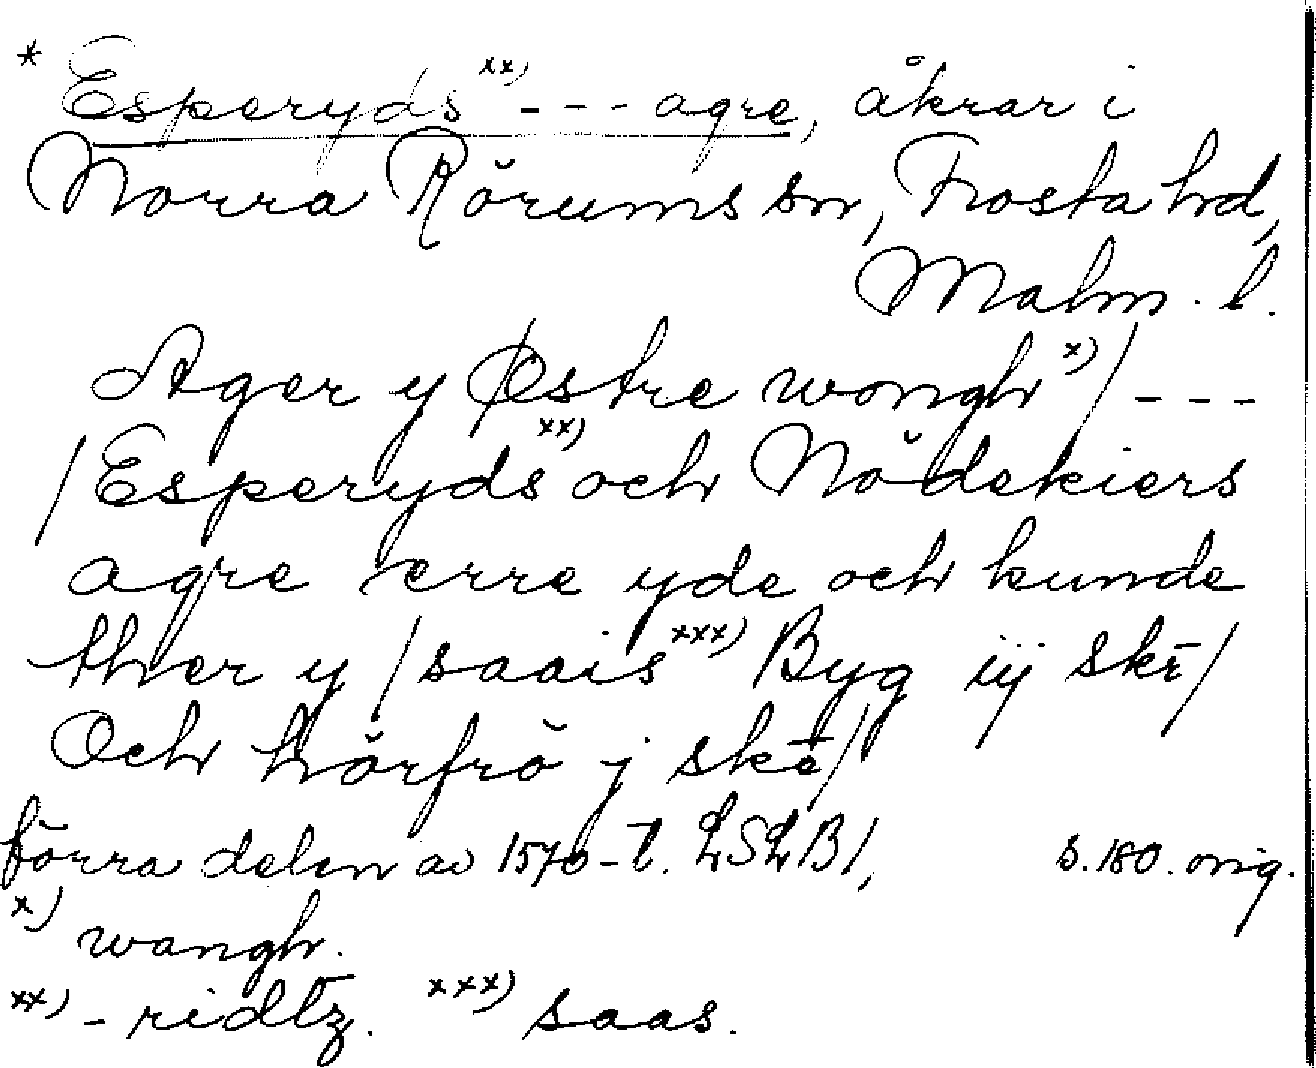 * Esperyds xx) - - - agre, åkrar i
Norra Rörums sn, Frosta hd,
Malm. l.
Ager y Østre wongh x) / - - -
/ Esperyds xx) och Nödekiers
agre ere yde och kunde
ther y / saais xxx) Byg iij skē /
Och hörfrö j skē /
förra delen av 1570-t. LSLB 1, s. 180. orig.
x) wangh.
xx) - ridtz. xxx) saas.